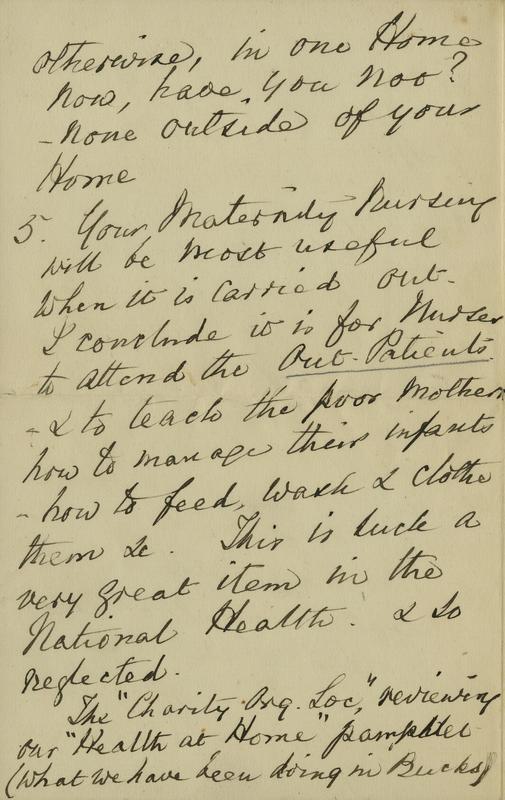 otherwise, in one Home
now, have you not?
- none outside of your
Home
5. Your Maternity Nursing
will be most useful
when it is carried out.
I conclude it is for Nurses
to attend the Out-Patients
- & to teach the poor Mothers
how to manage their infants
- how to feed, wash & clothe
them &c. This is such a
very great item in the
National Health. & so
neglected.
The "Charity Org. Soc," reviewing
our "Health at Home" pamphlet
(What we have been doing in Bucks)